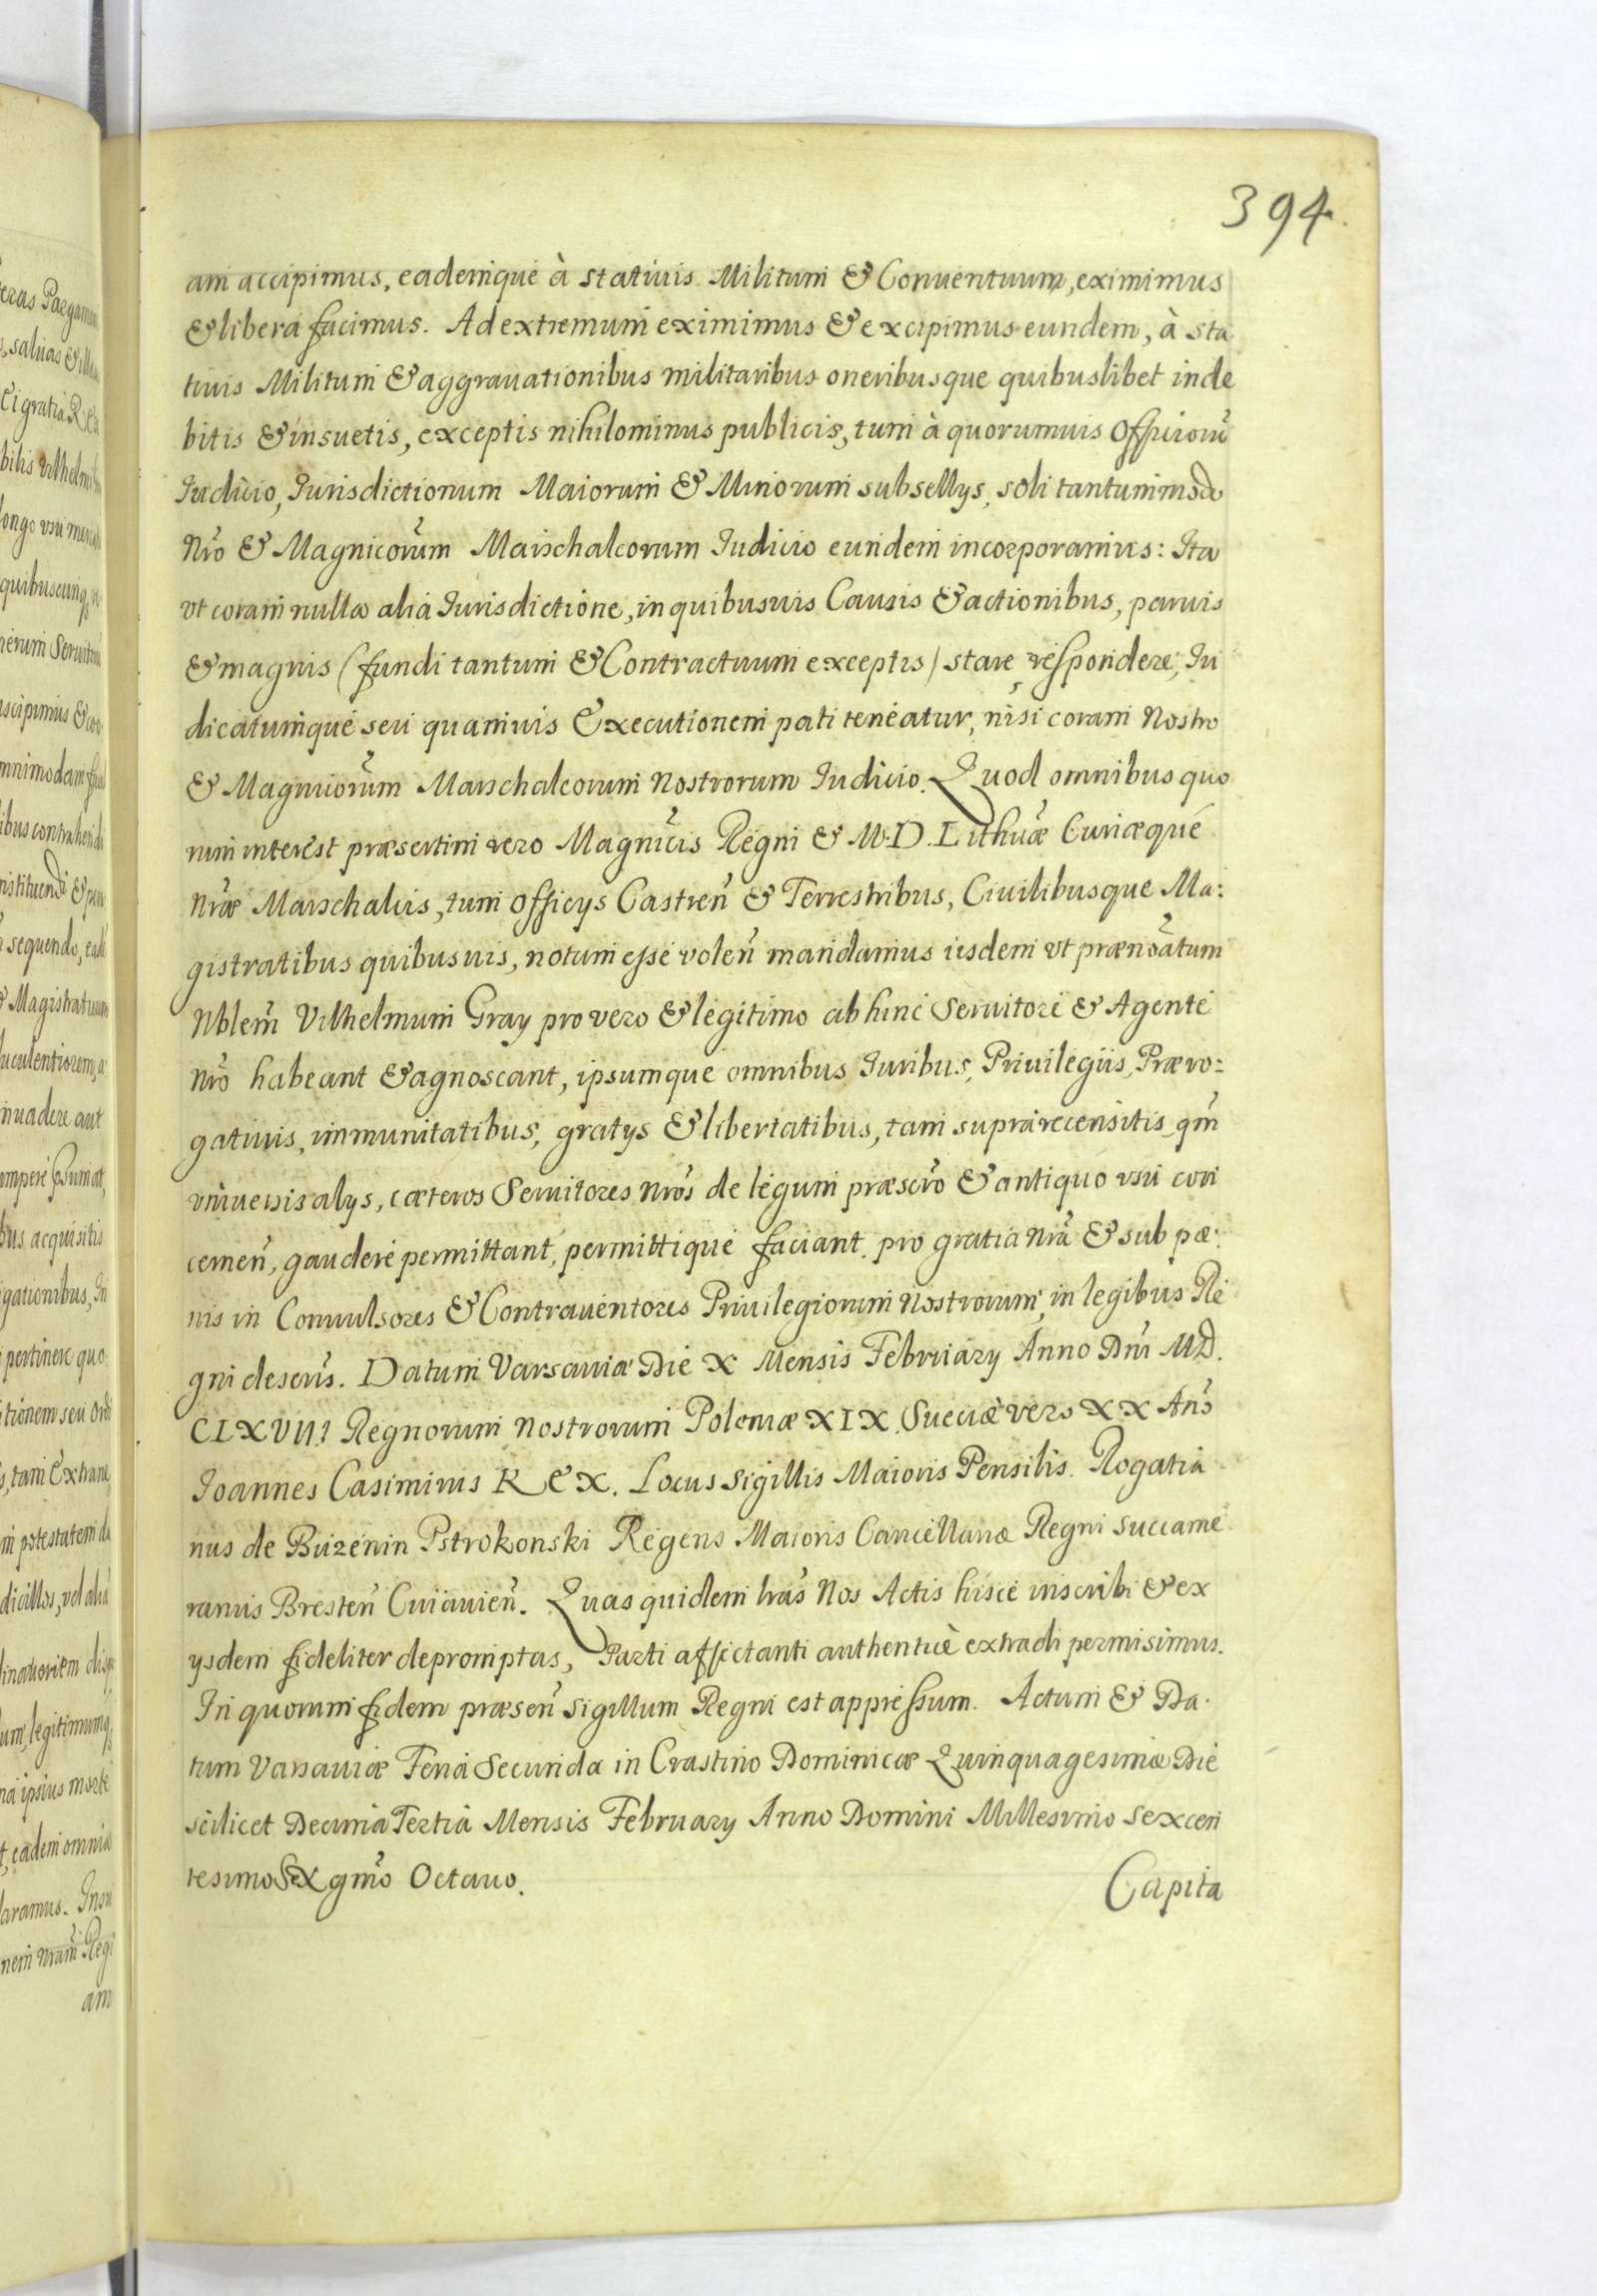 394.
am accipimus, eademque à statiuis Militum & Conuentuum, eximimus
& libera facimus. Ad extremum eximimus & excipimus eundem, à sta
tiuis Militum & aggrauationibus militaribus oneribusque quibuslibet inde
bitis & insuetis, exceptis nihilominus publicis, tum à quorumuis Officioru
Iudicio, Iurisdictionum Maiorum & Minorum subsellys, soli tantummodo
Nro & Magnicorum Marschalcorum Iudicio eundem incorporamus: Ita
vt coram nulla alia Iurisdictione, in quibusuis Causis & actionibus, paruis
& magnis (fundi tantum & Contractuum exceptis) stare respondere, Iu
dicatumque seu quamuis Executionem pati teneatur, nisi coram Nostro
& Magnicorum Marschalcorum Nostrorum Iudicio. Quod omnibus quo
rum interest præsertim vero Magnicis Regni & M. D. Lithuæ Curiæque
Nræ Marschalcis, tum Officys Castren & Terrestribus, Ciuilibusque Ma:
gistratibus quibusuis, notum esse volen mandamus iisdem vt prænoatum
Nblem Vilhelmum Gray pro vero & legitimo abhinc Seruitore & Agente
Nro habeant & agnoscant, ipsumque omnibus Iuribus, Priuilegiis, Præro:
gatiuis, immunitatibus, gratys & libertatibus, tam supra recensitis qm
vniuersis alys, cæteros Seruitores Nros de legum præscro & antiquo vsu con
cernen, gaudere permittant, permittique faciant. pro gratia Nra & sub pæ:
nis in Conuulsores & Contrauentores Priuilegiorum Nostrorum, in legibus Re
gni descris. Datum Varsauiæ Die X Mensis February Anno Dni MD.
CLXVIII Regnorum Nostrorum Poloniæ XIX. Sueciæ vero XX Ano
Ioannes Casimirus REX. Locus Sigillis Maioris Pensilis. Rogatia
nus de Buzenin Pstrokonski Regens Maioris Cancellariæ Regni Succame
rarius Bresten Cuiauien. Quas quidem lras Nos Actis hisce inscribi & ex
ysdem fideliter depromptas, Parti affectanti authenticè extradi permisimus.
In quorum fidem præsen Sigillum Regni est appressum. Actum & Da.
tum Varsauiæ Feria Secunda in Crastino Dominicæ Quinquagesimæ Die
scilicet Decima Tertia Mensis February Anno Domini Millesimo Sexcen
tesimo Sexgmo Octauo.
Capita